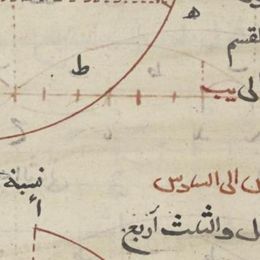 ه
القسم
ط
الى يب
الى السادس
نسبة
ا
والثلث أربع